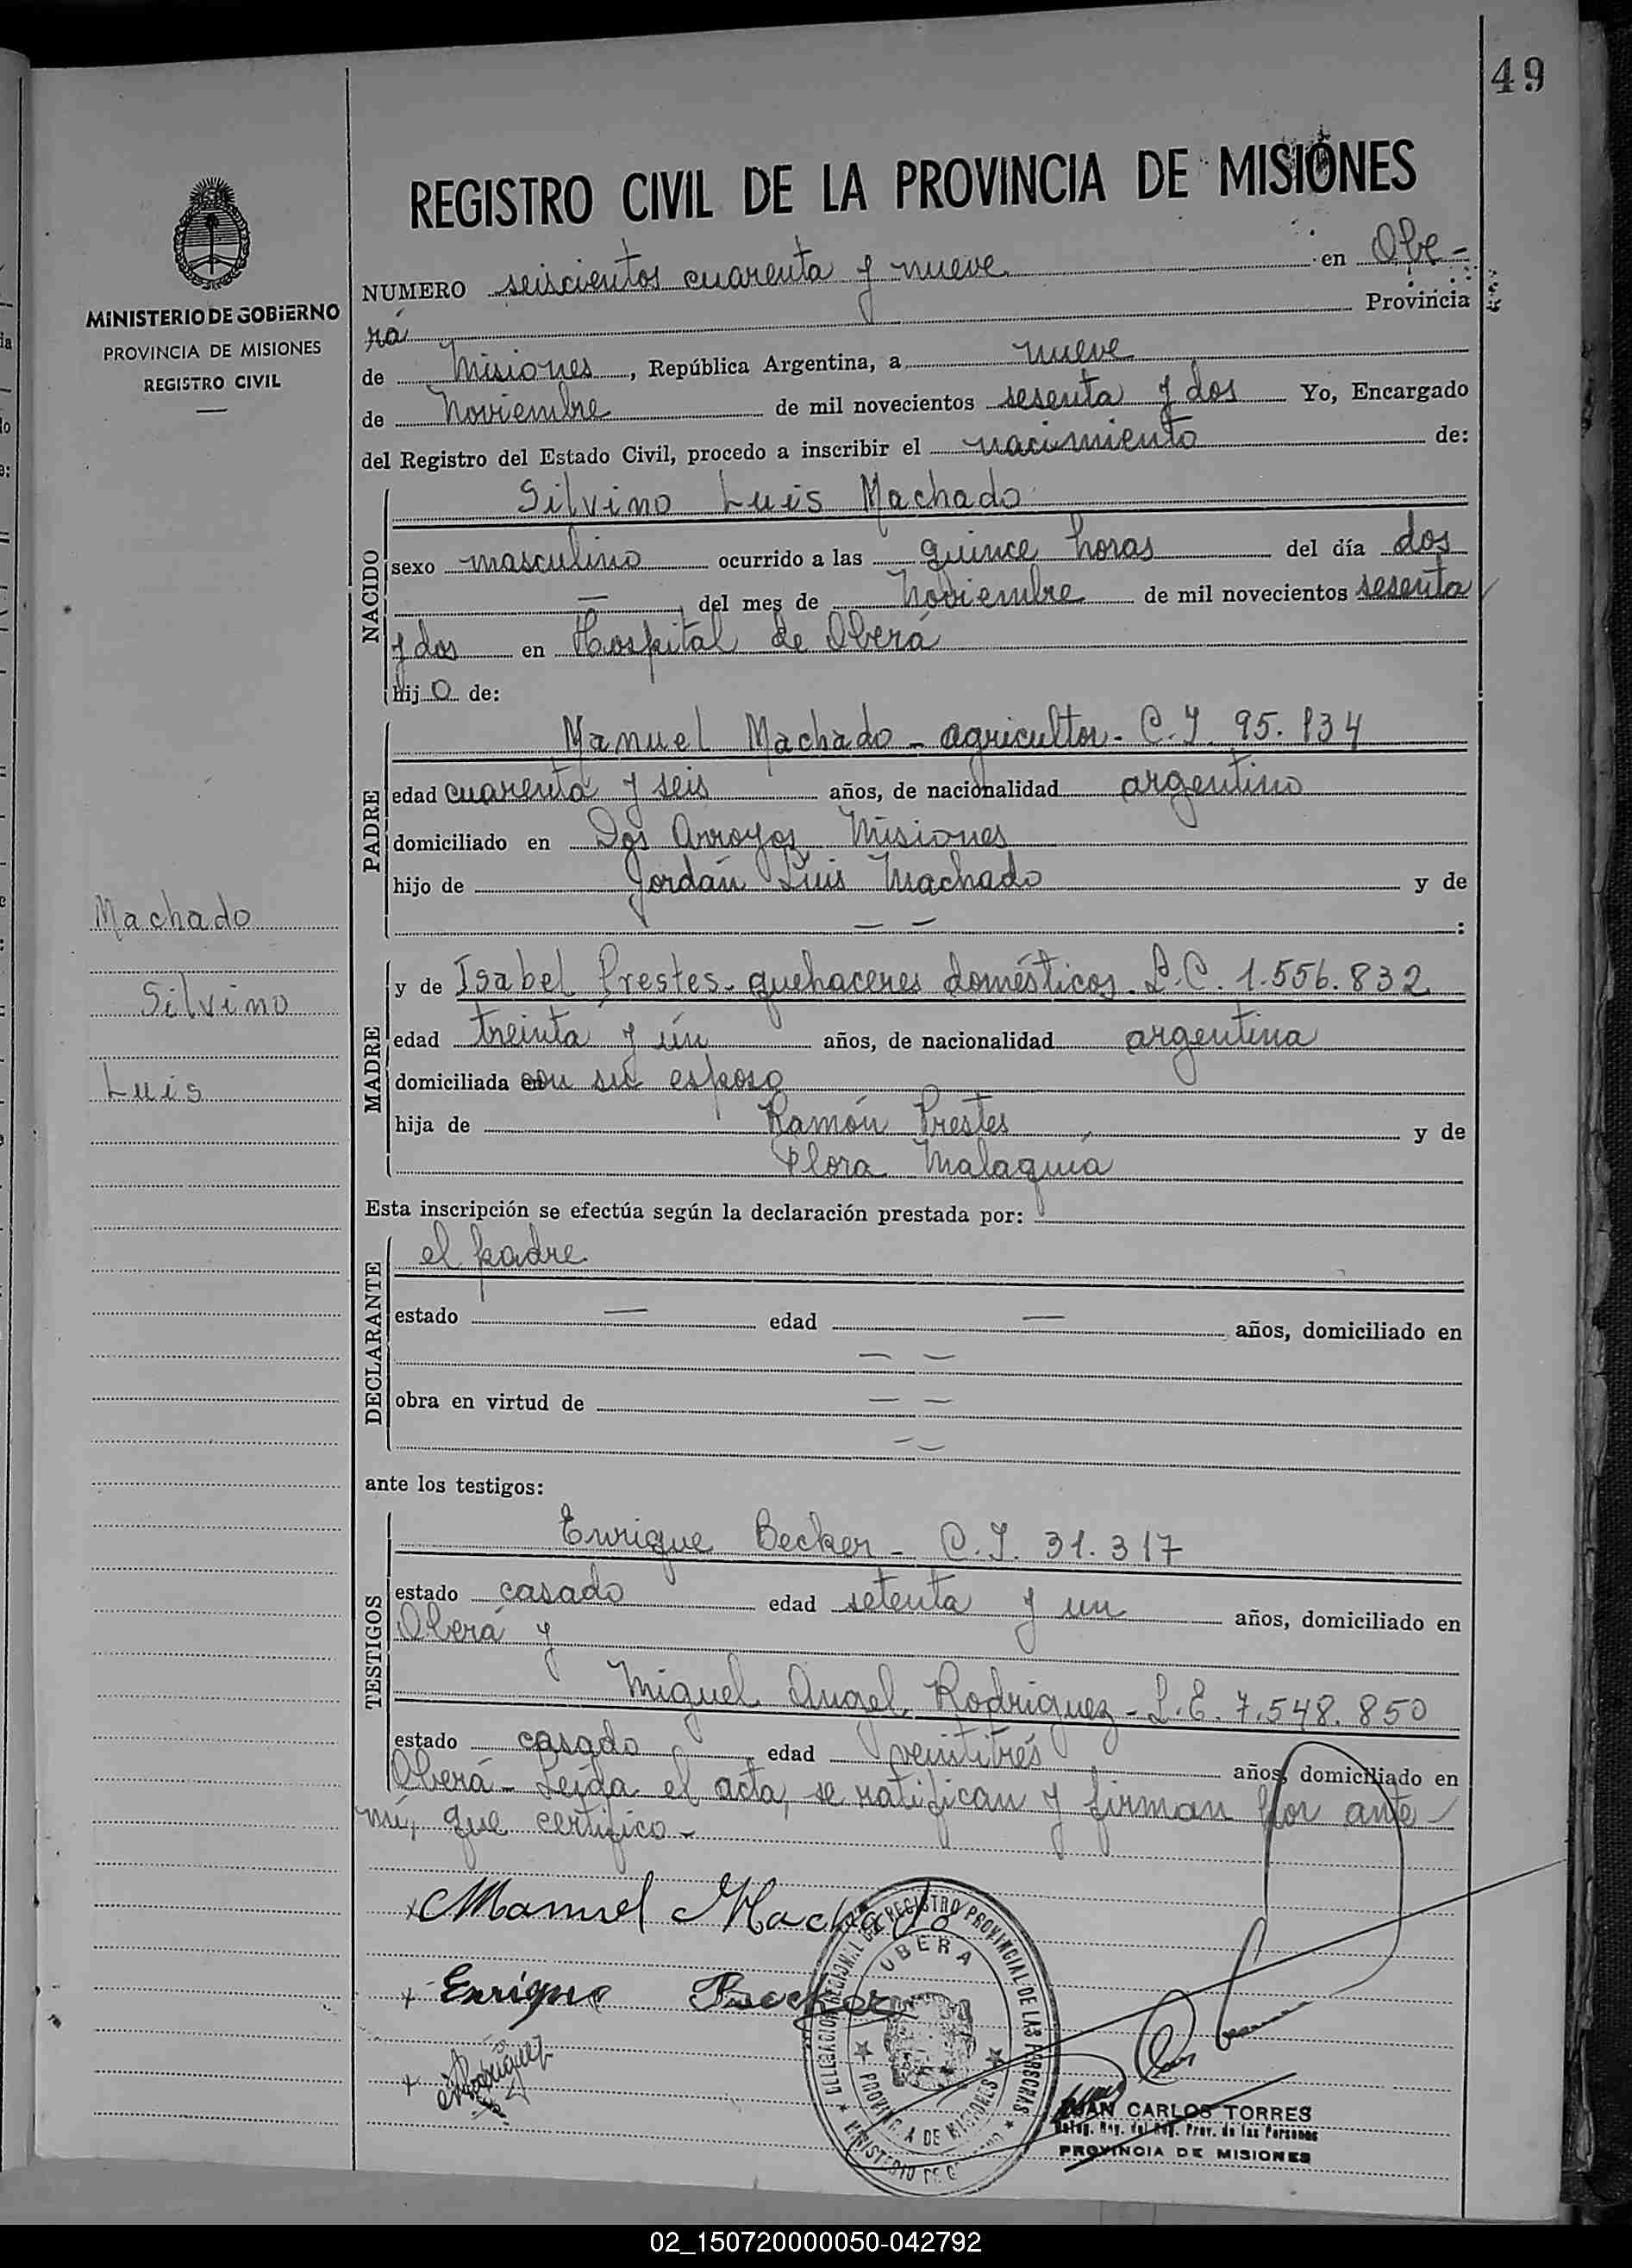 49
REGISTRO CIVIL DE LA PROVINCIA DE MISIONES
MINISTERIO DE GOBIERNO
PROVINCIA DE MISIONES
REGISTRO CIVIL
NUMERO seiscientos cuarenta y nueve en Obe-
rá Provincia
de Misiones, República Argentina, a nueve
de Noviembre de mil novecientos sesenta y dos Yo, Encargado
del Registro del Estado Civil, procedo a inscribir el nacimiento de:
NACIDO
Silvino Luis Machado
sexo masculino ocurrido a las quince horas del día dos
— del mes de Noviembre de mil novecientos sesenta
y dos en Hospital de Oberá
hijo de:
PADRE
Manuel Machado - agricultor - C.I. 95.134
edad cuarenta y seis años, de nacionalidad argentino
domiciliado en Dos Arroyos Misiones
hijo de Jordán Luis Machado y de
— — :
MADRE
y de Isabel Prestes - quehaceres domésticos. L.C. 1.556.832
edad treinta y ún años, de nacionalidad argentina
domiciliada en con su esposo
hija de Ramón Prestes y de
Flora Malaquia
Esta inscripción se efectúa según la declaración prestada por:
DECLARANTE
el padre
estado — edad — años, domiciliado en
— —
obra en virtud de — —
— —
ante los testigos:
TESTIGOS
Enrique Becker - C.I. 31.317
estado casado edad setenta y un años, domiciliado en
Oberá y
Miguel Angel Rodriguez - L.E. 7.548.850
estado casado edad veintitrés años, domiciliado en
Oberá - Leída el acta, se ratifican y firman por ante
mí, que certifico -
Machado
Silvino
Luis
x Manuel Machado
x Enrique Becker
x Rodriguez
DELEGACION REGIONAL DEL REGISTRO PROVINCIAL DE LAS PERSONAS
OBERA
PROVINCIA DE MISIONES
MINISTERIO DE
JUAN CARLOS TORRES
Deleg. Reg. del Reg. Prov. de las Personas
PROVINCIA DE MISIONES
02_150720000050-042792